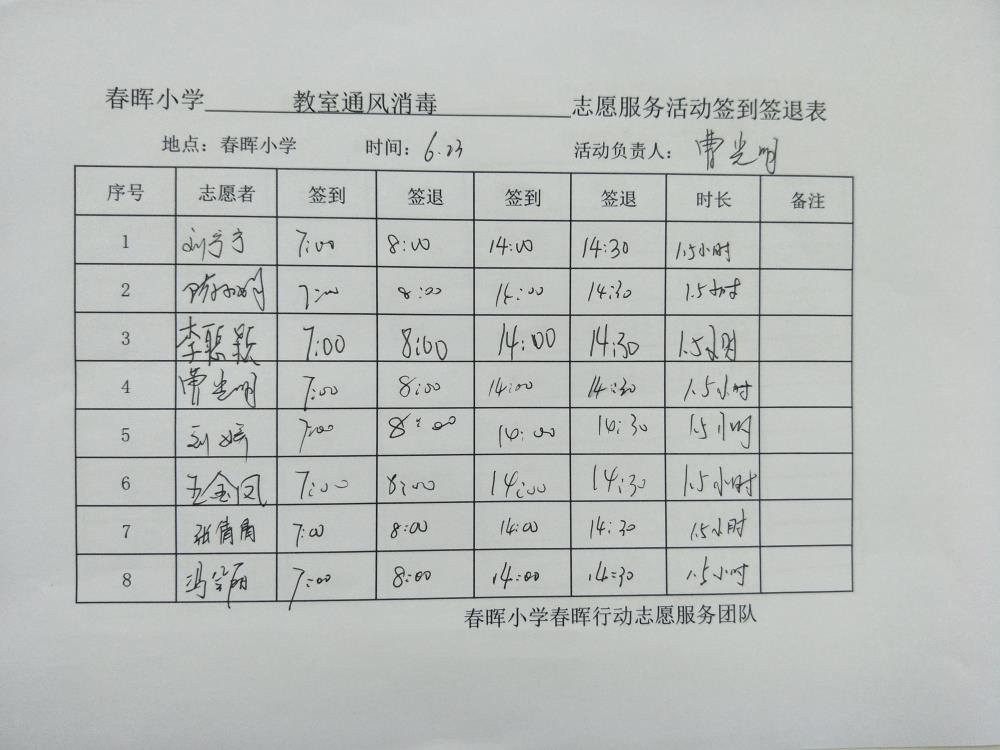 春晖小学 教室通风消毒 志愿服务活动签到签退表
地点：春晖小学 时间：6.23 活动负责人：曹光明
序号 志愿者 签到 签退 签到 签退 时长 备注
1 刘方方 7:00 8:00 14:00 14:30 1.5小时
2 7:00 8:00 14:00 14:30 1.5小时
3 李聪颖 7:00 8:00 14:00 14:30 1.5小时
4 曹光明 7:00 8:00 14:00 14:30 1.5小时
5 7:00 8:00 14:00 14:30 1.5小时
6 王金凤 7:00 8:00 14:00 14:30 1.5小时
7 张倩 7:00 8:00 14:00 14:30 1.5小时
8 冯 丽 7:00 8:00 14:00 14:30 1.5小时
春晖小学春晖行动志愿服务团队